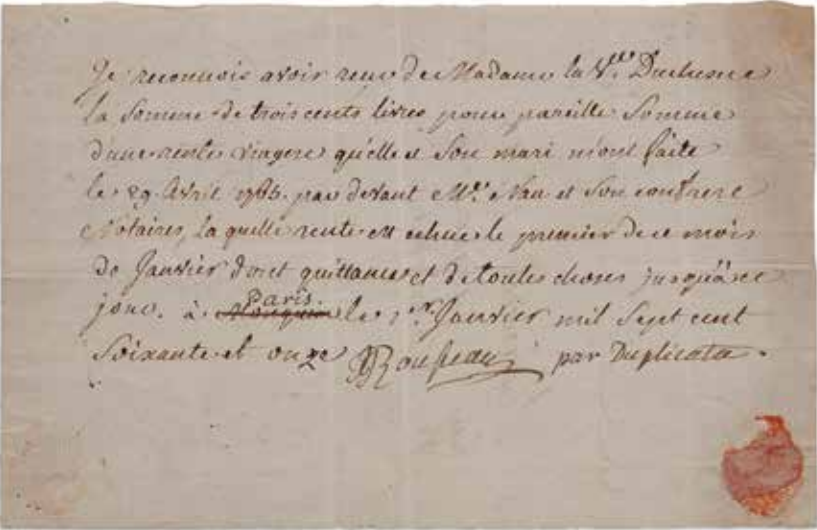 Je reconnois avoir reçu de Madame la V.ve Duchesne
la Somme de trois cents livres pour pareille Somme
d'une rente viagere qu'elle et Son mari m'ont faite
le 29 Avril 1765. par devant Mr. Nau et Son confrere
Notaires, la quelle rente est echue le premier de ce mois
de Janvier dont quittance et de toutes choses jusqu'à ce
jour. à Paris. le 1er. Janvier mil Sept cent
Soixante et onze JJRousseau par Duplicata.